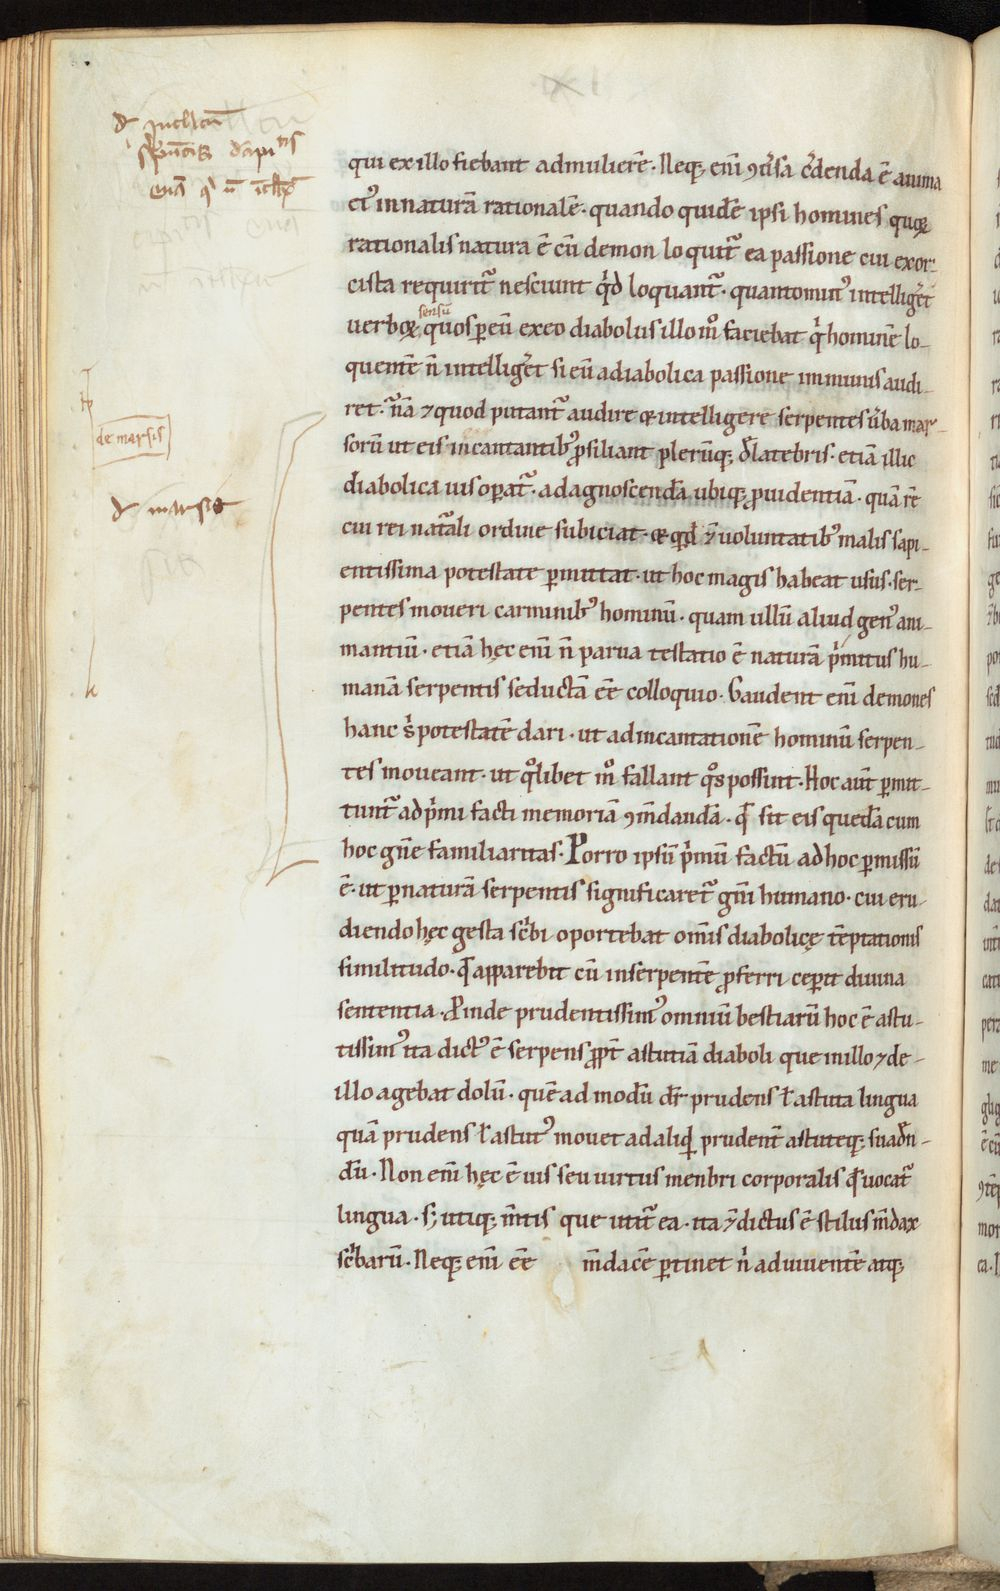 de marsis
d̄ marsis
qui ex illo fiebant ad mulierē. Neq; enī ꝯuͥsa c̄denda ē anima
eiꝰ in naturā rationalē. quando quidē ipsi homines quoꝝ
rationalis natura ē cū demon loquit᷑ ea passione cui exor-
cista requirit᷑ nesciunt qͥd loquant᷑. quantominꝰ intelliget᷑
sensū
uerboꝝ quos p̲ eū ex eo diabolus illo mº faciebat qͥ hominē lo-
quentē n̄ intelliget᷑ si eū a diabolica passione immunis audi-
ret. Nā ⁊ quod putant᷑ audire & intelligere serpentes uͥba mar-
sorū ut eis incantantibꝰ ꝓsiliant plerūq; d̄ latebris. etiā illic
diabolica uis op̲at᷑. ad agnoscendā ubiq; ꝓuidentiā. quā rē
cui rei nat᷑ali ordine subiciat. & qͥd ⁊ uoluntatibꝰ malis sapi-
entissima potestate p̲mittat. ut hoc magis habeat usus. ser-
pentes moueri carminibꝰ hominū. quam ullū aliud genꝰ ani-
mantiū. etiā hęc enī n̄ parua testatio ē naturā pͥmitus hu-
manā serpentis seductā eē colloquio. Gaudent enī demones
hanc sͥ potestatē dari. ut ad incantationē hominū serpen-
tes moueant. ut qͦlibet mº fallant qͦs possunt. Hoc aūt p̲mit-
tunt᷑ ad pͥmi facti memoriā ꝯm̄dandā. qd̄ sit eis quedā cum
hoc gn̄e familiaritas. Porro ipsū pͥmū factū ad hoc p̲missū
ē. ut p̲ naturā serpentis significaret᷑ gn̄i humano. cui eru-
diendo hęc gesta scͥbi oportebat omīs diabolicę tēptationis
similitudo. qd̄ apparebit cū in serpentē ꝓferri cep̲it diuina
sententia. Pͥinde prudentissimꝰ omniū bestiarū hoc ē astu-
tissimꝰ ita dictꝰ ē serpens ꝓpt̄ astutiā diaboli que in illo ⁊ de
illo agebat dolū. quē ad modū dr̄ prudens ł astuta lingua
quā prudens ł astutꝰ mouet ad aliqd̄ prudent̄ astuteq; suadn̄-
dū. Non enī hęc ē uis seu uirtus menbri corporalis qd̄ uocat᷑
lingua. s; utiq; m̄tis que utit᷑ ea. ita ⁊ dictus ē stilus m̄dax
scͥbarū. Neq; enī eē m̄dacē p̲tinet n̄ ad uiuentē atq;